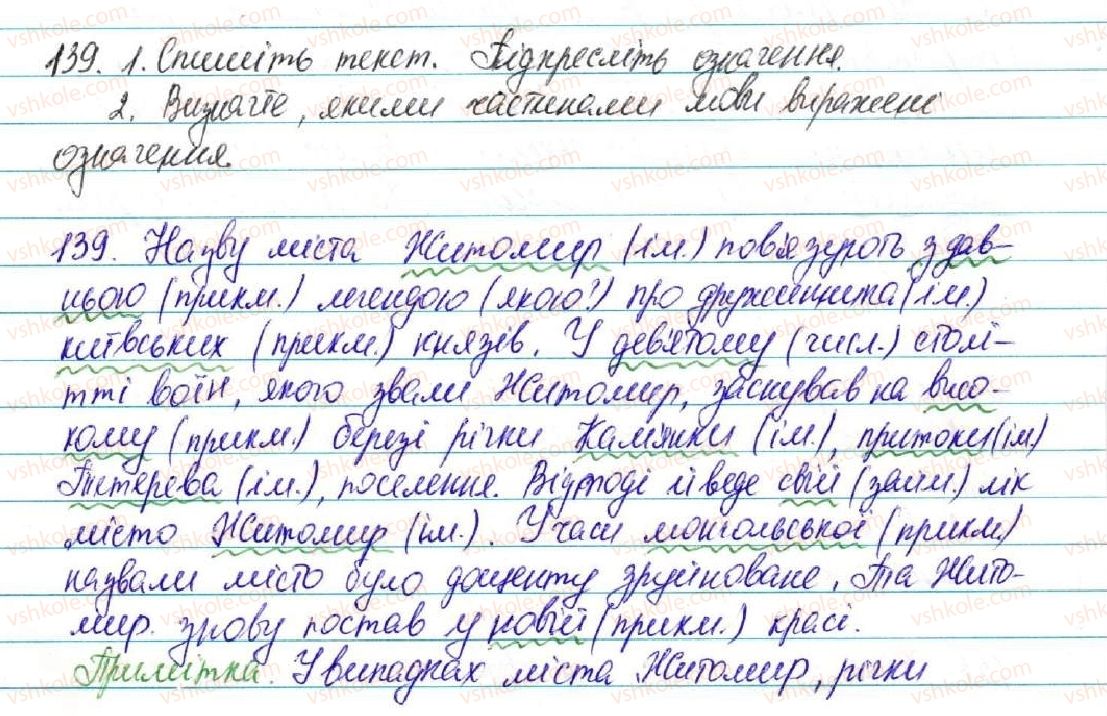 139. 1. Спишіть текст. Підкресліть означення.
2. Визначте, якими частинами мови виражені
означення.
139. Назву міста Житомир (ім.) пов'язують з дав-
нього (прикм.) легендою (якого?) про дружинника (ім.)
київських (прикм.) князів. У дев'ятому (числ.) столі-
тті воїн, якого звали Житомир, заснував на висо-
кому (прикм.) березі річки Кам'янки (ім.), притоки (ім.)
Тетерева (ім.), поселення. Відтоді й веде свій (займ.) лік
місто Житомир (ім.). У часи монгольської (прикм.)
назвали місто було дощенту зруйноване. Та Жито-
мир знову постав у новій (прикм.) красі.
Примітка. У випадках міста Житомир, річки